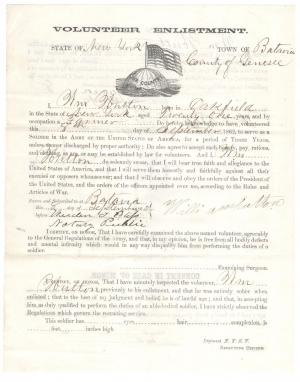 VOLUNTEER ENLISTMENT.
STATE OF New York TOWN OF Batavia
County of Genesee
I, Wm born in
in the State of New York aged Twenty One years, and by
occupation a Farmer Do hereby acknowledge to have volunteered
this day of September 1862, to serve as a
Soldier in the Army of the United States of America, for the period of Three Years,
unless sooner discharged by proper authority: Do also agree to accept such bounty, pay, rations,
and clothing, as are or may be established by law for volunteers. And I, Wm
do solemnly swear, that I will bear true faith and allegiance to the
United States of America, and that I will serve them honestly and faithfully against all their
enemies or opposers whomsoever; and that I will observe and obey the orders of the President of
the United States, and the orders of the officers appointed over me, according to the Rules and
Articles of War.
Sworn and Subscribed to at Batavia
this day of September
before
Notary Public
I certify, on honor, That I have carefully examined the above named volunteer, agreeably
to the General Regulations of the Army, and that, in my opinion, he is free from all bodily defects
and mental infirmity which would in any way disqualify him from performing the duties of a
soldier.
Examining Surgeon.
I certify, on honor, That I have minutely inspected the volunteer, Wm
previously to his enlistment, and that he was entirely sober when
enlisted; that to the best of my judgment and belief, he is of lawful age; and that, in accepting him,
as duly qualified to perform the duties of an able-bodied soldier, I have strictly observed the
Regulations which govern the recruiting service.
This soldier has eyes, hair, complexion, is
feet, inches high.
Regiment N. Y. S. V.
Recruiting Officer.